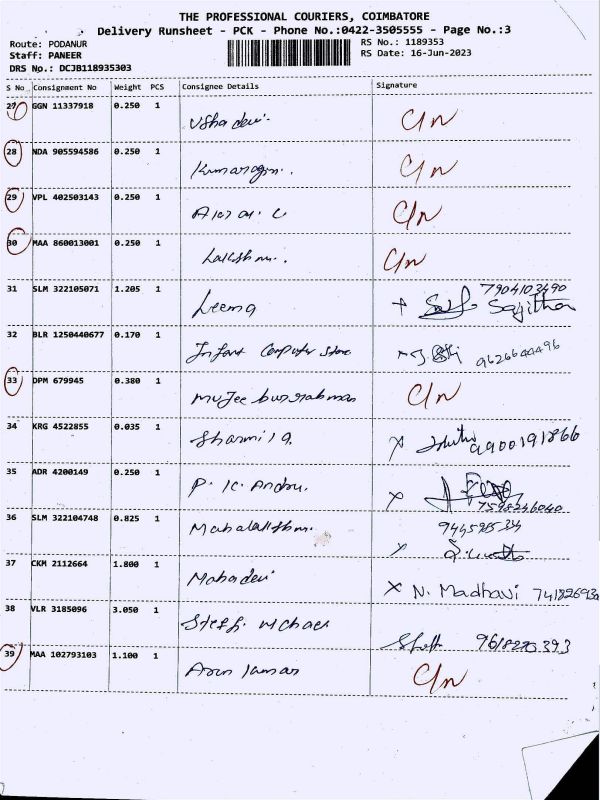 THE PROFESSIONAL COURIERS, COIMBATORE
Delivery Runsheet - PCK - Phone No.:0422-3505555 - Page No.:3
Route: PODANUR
RS No.: 1189353
Staff: PANEER
RS Date: 16-Jun-2023
DRS No.: DCJB118935303
S No Consignment No Weight PCS Consignee Details Signature
27 GGN 11337918 0.250 1 Usha devi. C/n
28 NDA 905594586 0.250 1 C/n
29 VPL 402503143 0.250 1 C/n
30 MAA 860013001 0.250 1 Lakshmi. C/n
31 SLM 322105071 1.205 1 Leema 7904103490 Sajitha
32 BLR 1250440677 0.170 1 Infant Computer Store 9626644496
33 DPM 679945 0.380 1 Mujee burrahman C/n
34 KRG 4522855 0.035 1 Sharmila. 9900191866
35 ADR 4200149 0.250 1 P. K. 7598246040
36 SLM 322104748 0.825 1 Mahalakshmi.
37 CKM 2112664 1.800 1 Mahadevi X N. Madhavi
38 VLR 3185096 3.050 1 Steffi 9618270393
39 MAA 102793103 1.100 1 Arun kumar C/n